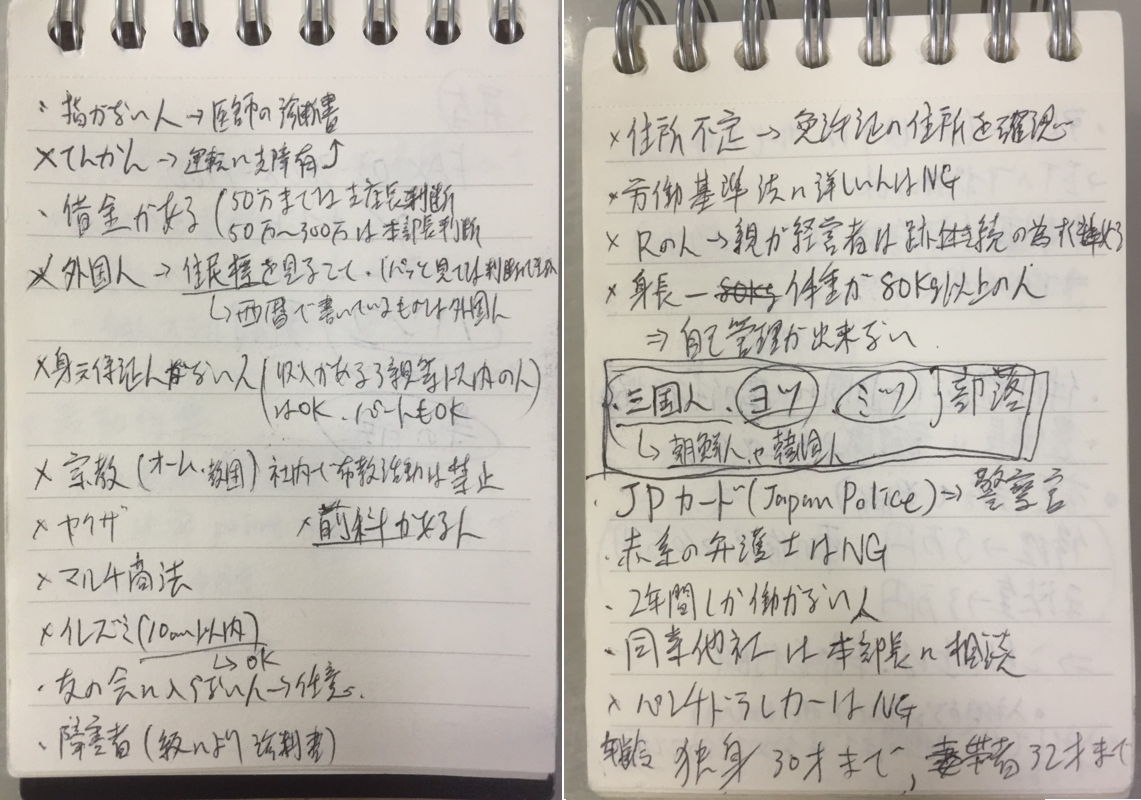 ・指がない人→医師の診断書
×てんかん→運転に支障有↑
・借金がある(50万までは支店長判断
50万~300万は本部長判断
×外国人→住民票を見ること、(パッと見ては判断
↳西暦で書いているものは外国人
×身元保証人がない人(収入がある3親等以内の人)
はOK、パートもOK
×宗教(オーム・
社内で布教活動は禁止
×ヤクザ ×前科がある人
×マルチ商法
×イレズミ(10cm以内)
↳OK
・友の会に入らない人→任意。
・障害者(級により診断書)
×住所不定→免許証の住所を確認
×労働基準法に詳しい人はNG
×Rの人→親が経営者は跡継続の為
×身長― 体重が80Kg以上の人
⇒自己管理が出来ない
・三国人、ヨツ、ミツ 部落
↳朝鮮人や韓国人
・JPカード(Japan Police)⇒警察官
・赤系の弁護士はNG
・2年間しか働かない人
・同業他社は本部長に相談
×ペレ4ドラレカーはNG
年齢 独身30才まで、妻帯者32才まで